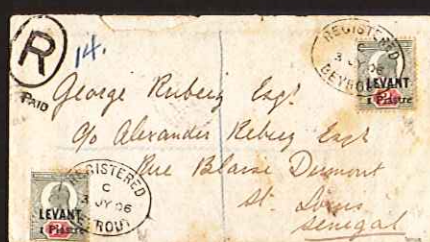 R
14.
PAID
REGISTERED
C
3 JY 06
BEYROUT
LEVANT
1 Piastre
George Rubeiz Esqr
c/o Alexander Rebeiz Esqr
Rue Blaise Dumont
St. Louis
Senegal
REGISTERED
C
3 JY 06
BEYROUT
LEVANT
1 Piastre